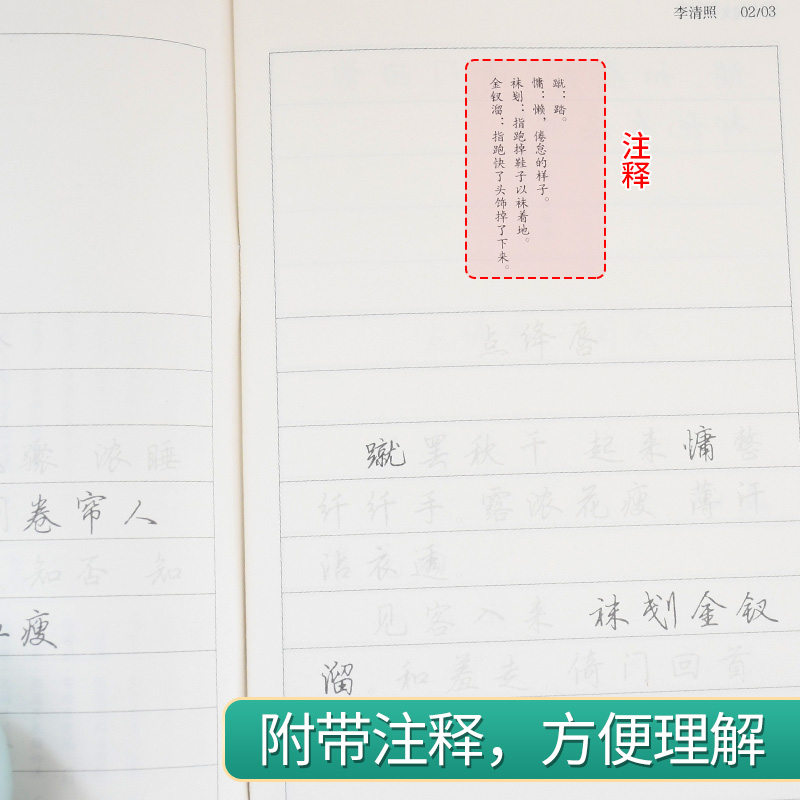 李清照 02/03
蹴：踏。
慵：懒，倦怠的样子。
袜刬：指跑掉鞋子以袜着地。
金钗溜：指跑快了头饰掉了下来。
注释
骤 浓睡
卷帘人
知否 知
瘦
点绛唇
蹴罢秋千 起来慵整
纤纤手 露浓花瘦 薄汗
沾衣透
见客入来 袜刬金钗
溜 和羞走 倚门回首
附带注释，方便理解